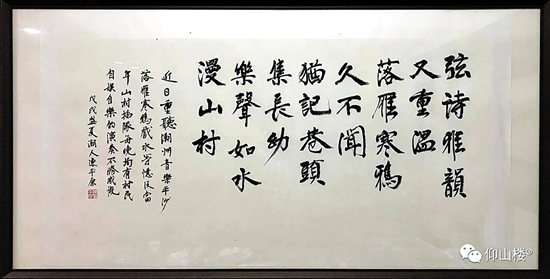 弦诗雅韻
又重温
落雁寒鴉
久不聞
猶記巷頭
集長幼
樂聲如水
漫山村
近日重聽潮州音樂平沙
落雁寒鴉戲水等憶及當
年山村插隊每晚均有村民
自娱自樂的演奏不勝感慨
戊戌盛夏潮人陳平原
仰山楼